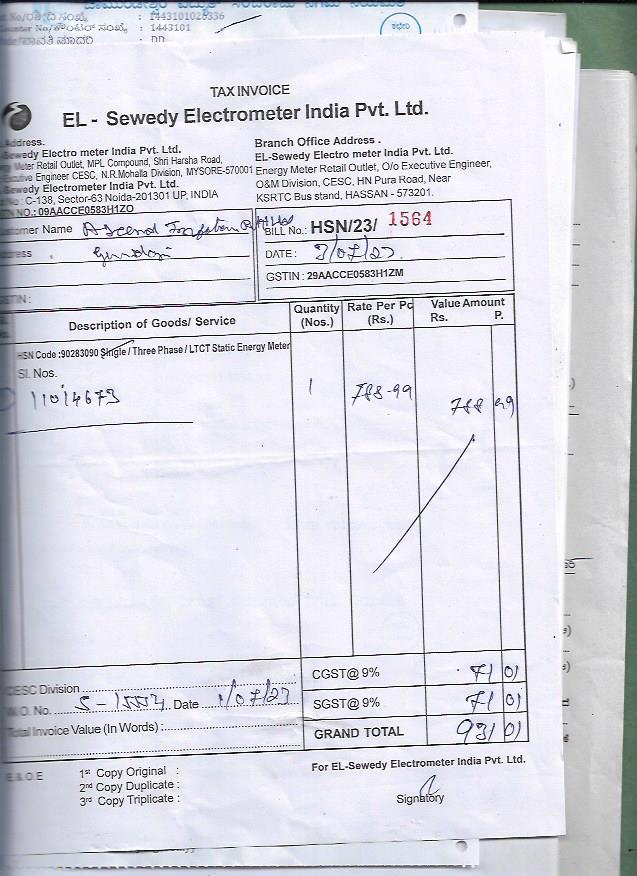 ಸಂಖ್ಯೆ : 1443101026336
No/ಕೌಂಟರ್ ಸಂಖ್ಯೆ : 1443101
ಪಾವತಿ ಮಾದರಿ : DD
TAX INVOICE
EL - Sewedy Electrometer India Pvt. Ltd.
Address.
Sewedy Electro meter India Pvt. Ltd.
Meter Retail Outlet, MPL Compound, Shri Harsha Road,
Executive Engineer CESC, N.R.Mohalla Division, MYSORE-570001
Sewedy Electrometer India Pvt. Ltd.
No : C-138, Sector-63 Noida-201301 UP, INDIA
TN NO.: 09AACCE0583H1ZO
Branch Office Address .
EL-Sewedy Electro meter India Pvt. Ltd.
Energy Meter Retail Outlet, O/o Executive Engineer,
O&M Division, CESC, HN Pura Road, Near
KSRTC Bus stand, HASSAN - 573201.
tomer Name Ascend
ress .
GSTIN :
BILL No.: HSN/23/ 1564
DATE : 3/07/23
GSTIN : 29AACCE0583H1ZM
Description of Goods/ Service
Quantity (Nos.)
Rate Per Pc (Rs.)
Value Amount
Rs. P.
HSN Code :90283090 Single / Three Phase / LTCT Static Energy Meter
Sl. Nos.
11014673 1 788-99 788 99
CGST@ 9% 71 01
SGST@ 9% 71 01
GRAND TOTAL 931 01
CESC Division
W.O. No. S-1554 Date 1/07/23
Total Invoice Value (In Words) :
E & O E
1st Copy Original :
2nd Copy Duplicate :
3rd Copy Triplicate :
For EL-Sewedy Electrometer India Pvt. Ltd.
Signatory